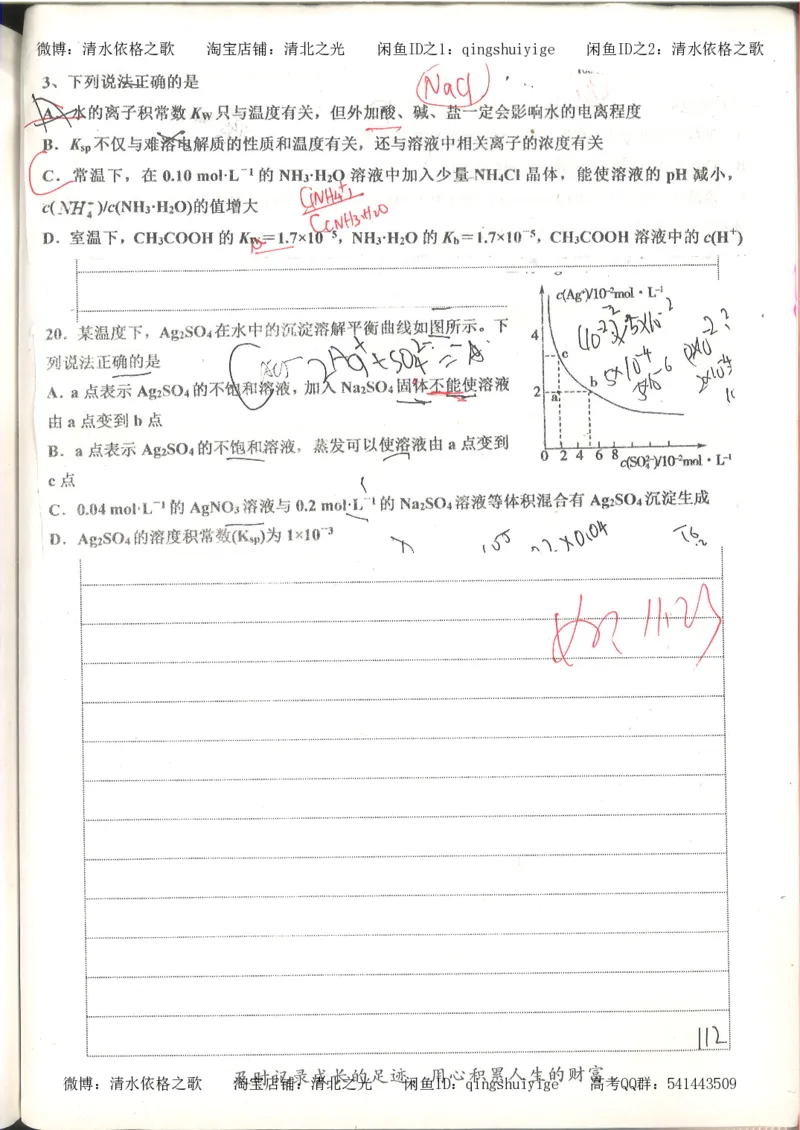 微博：清水依格之歌 淘宝店铺：清北之光 闲鱼ID之1：qingshuiyige 闲鱼ID之2：清水依格之歌
3、下列说法正确的是
NaCl
A．水的离子积常数 KW 只与温度有关，但外加酸、碱、盐一定会影响水的电离程度
B．Ksp 不仅与难溶电解质的性质和温度有关，还与溶液中相关离子的浓度有关
C．常温下，在 0.10 mol·L⁻¹ 的 NH₃·H₂O 溶液中加入少量 NH₄Cl 晶体，能使溶液的 pH 减小，
c(NH₄⁺)/c(NH₃·H₂O)的值增大
C(NH₄⁺)
C(NH₃·H₂O
D．室温下，CH₃COOH 的 Ka=1.7×10⁻⁵，NH₃·H₂O 的 Kb=1.7×10⁻⁵，CH₃COOH 溶液中的 c(H⁺)
20．某温度下，Ag₂SO₄ 在水中的沉淀溶解平衡曲线如图所示。下
列说法正确的是
2Ag⁺+SO₄²⁻=A
A．a 点表示 Ag₂SO₄ 的不饱和溶液，加入 Na₂SO₄ 固体不能使溶液
由 a 点变到 b 点
B．a 点表示 Ag₂SO₄ 的不饱和溶液，蒸发可以使溶液由 a 点变到
c 点
C．0.04 mol·L⁻¹ 的 AgNO₃ 溶液与 0.2 mol·L⁻¹ 的 Na₂SO₄ 溶液等体积混合有 Ag₂SO₄ 沉淀生成
D．Ag₂SO₄ 的溶度积常数(Ksp)为 1×10⁻³
c(Ag⁺)/10⁻²mol·L⁻¹
4
c
b
2
a
0 2 4 6 8
c(SO₄²⁻)/10⁻²mol·L⁻¹
5×10⁻⁴
5×10⁻⁶
×0.04
112
及时记录成长的足迹 用心积累人生的财富
微博：清水依格之歌 淘宝店铺：清北之光 闲鱼ID：qingshuiyige 高考QQ群：541443509